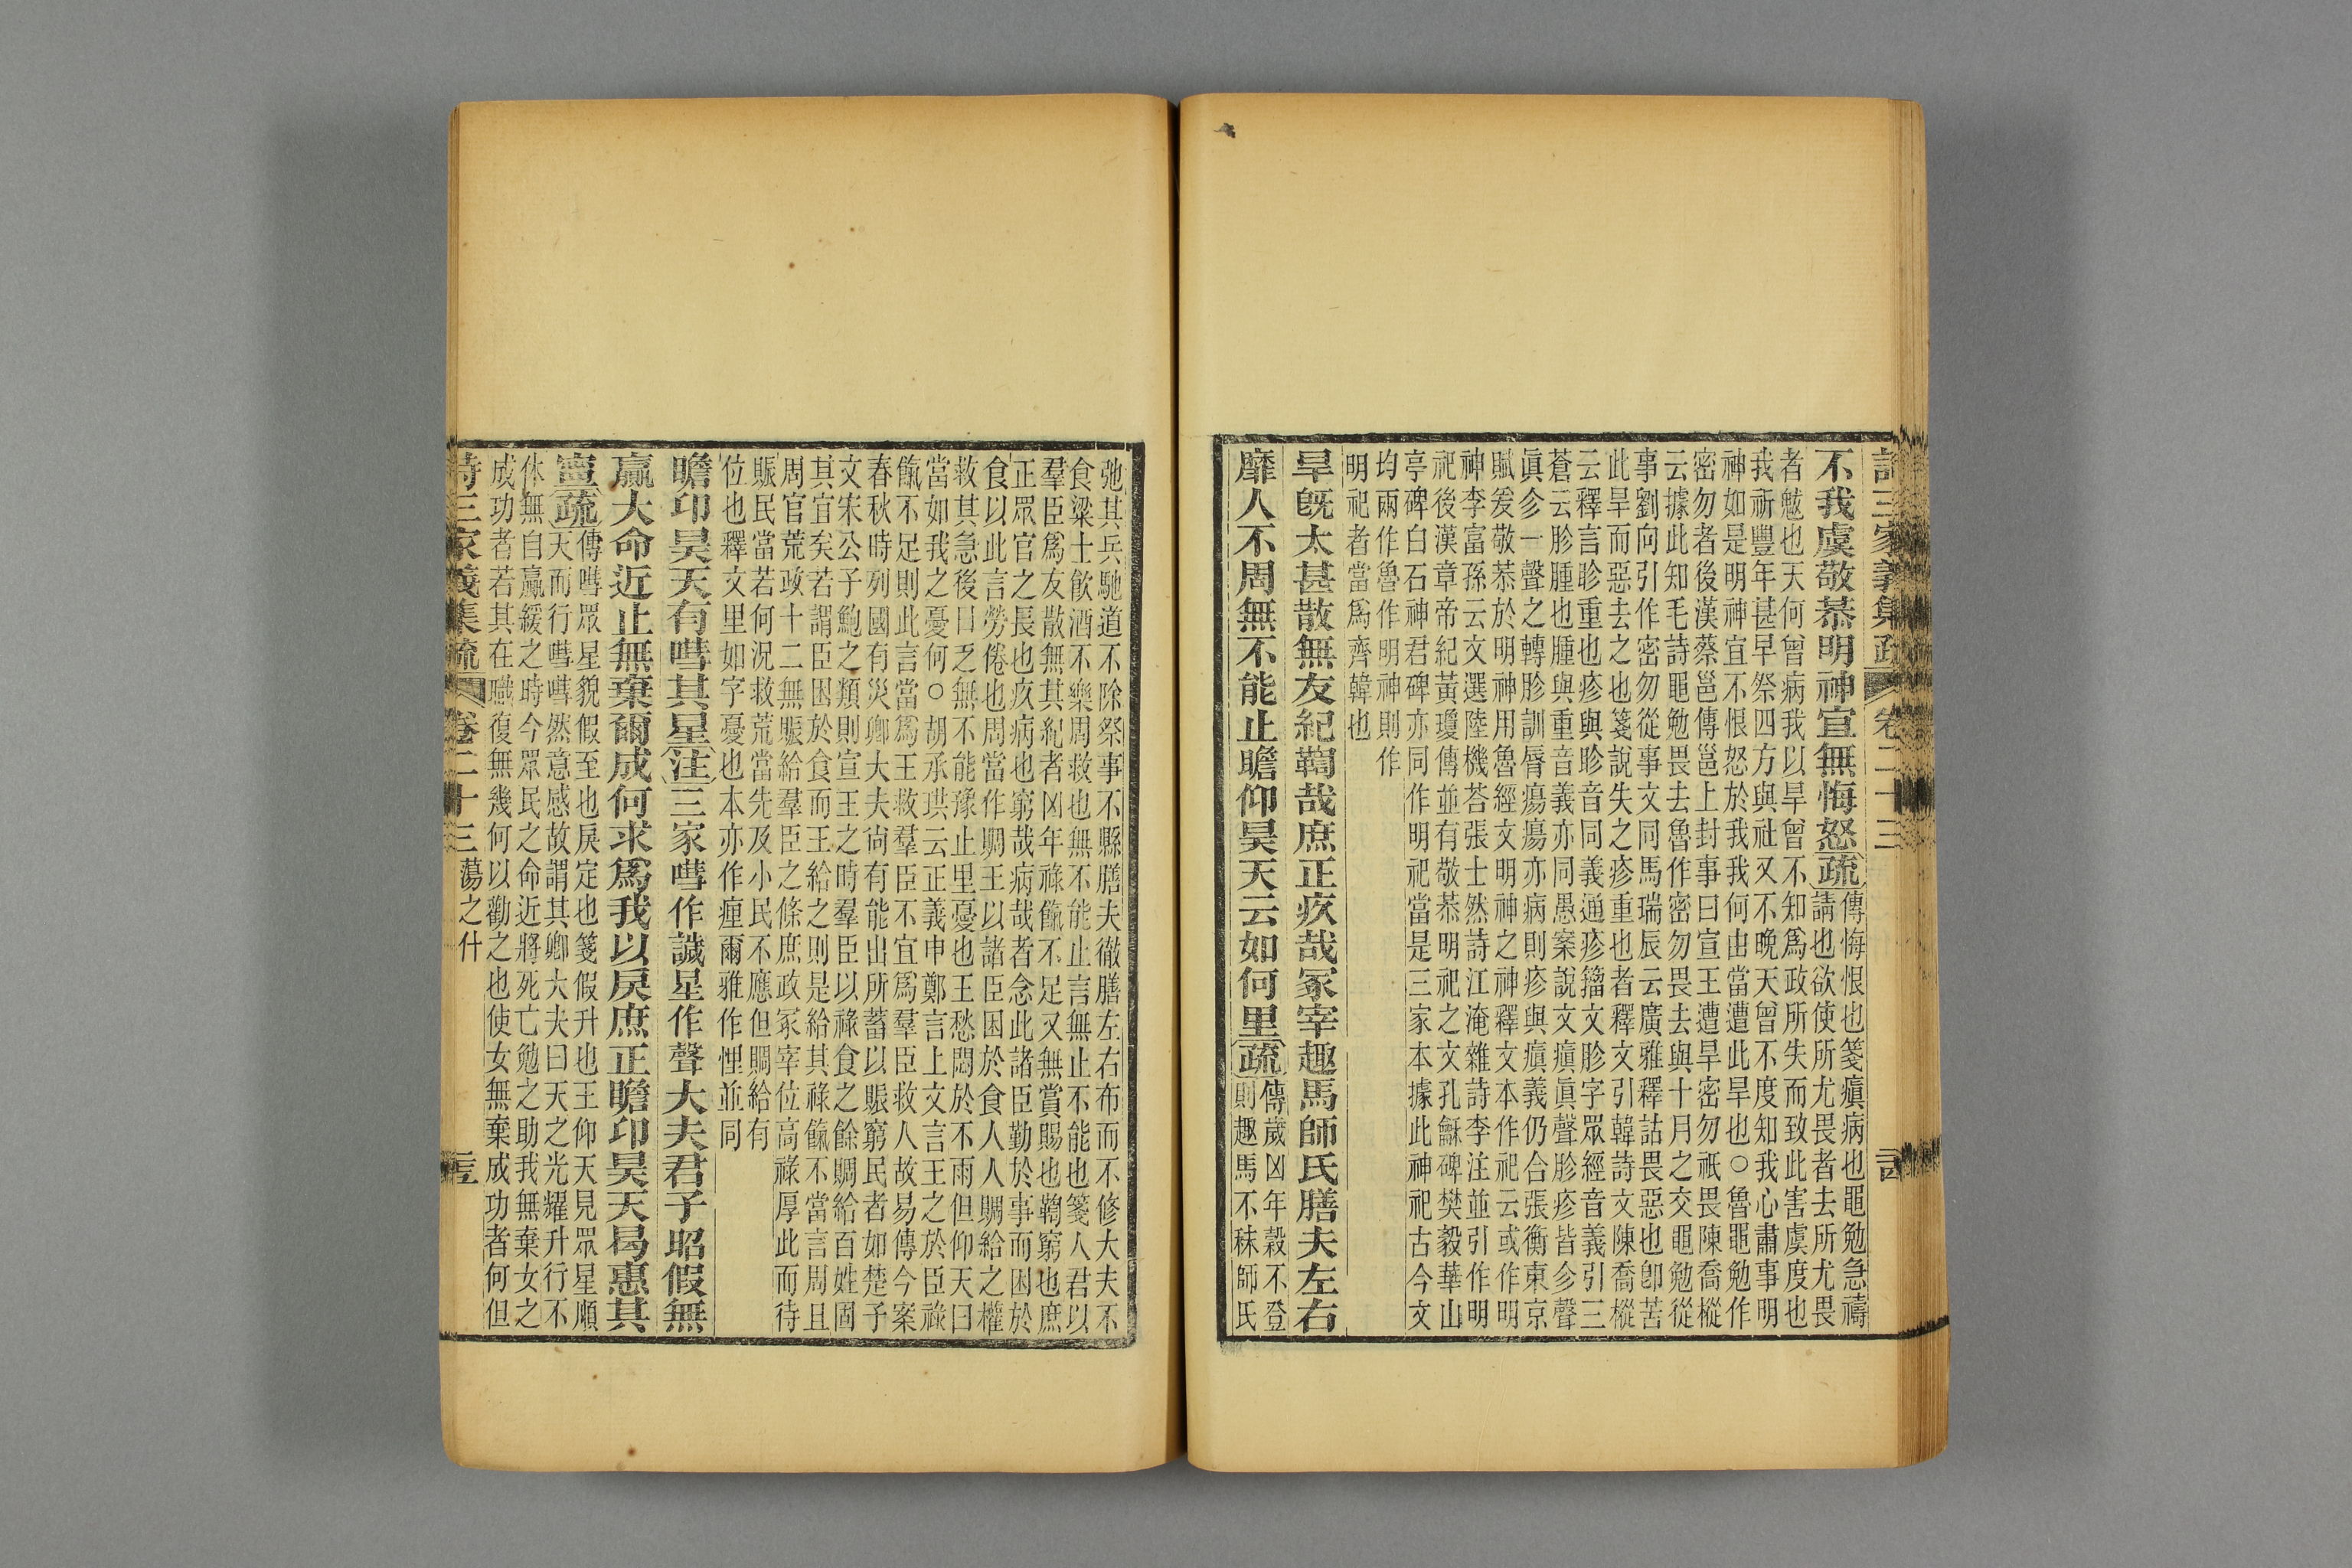 詩三家義集疏 卷二十三 二四
不我虞敬恭明神宜無悔怒疏傳悔恨也箋瘨病也黽勉急禱
請也欲使所尤畏者去所尤畏
者魃也天何曾病我以旱曾不知爲政所失而致此害虞度也
我祈豐年甚早祭四方與社又不晚天曾不度知我心肅事明
神如是明神宜不恨怒於我我何由當遭此旱也○魯黽勉作
密勿者後漢蔡邕傳邕上封事曰宣王遭旱密勿祇畏陳喬樅
云據此知毛詩黽勉畏去魯作密勿畏去與十月之交黽勉從
事劉向引作密勿從事文同馬瑞辰云廣雅釋詁畏惡也卽苦
此旱而惡去之也箋說失之疹重也者釋文引韓詩文陳喬樅
云釋言眕重也疹與眕音同義通疹籀文胗字眾經音義引三
蒼云胗腫也腫與重音義亦同愚案說文瘨眞聲胗疹皆㐱聲
眞㐱一聲之轉胗訓脣瘍瘍亦病則疹與瘨義仍合張衡東京
賦爰敬恭於明神用魯經文明神之神釋文本作祀云或作明
神李富孫云文選陸機荅張士然詩江淹雜詩李注並引作明
祀後漢章帝紀黃瓊傳並有敬恭明祀之文孔龢碑樊毅華山
亭碑白石神君碑亦同作明祀當是三家本據此神祀古今文
均兩作魯作明神則作
明祀者當爲齊韓也
旱旣太甚散無友紀鞫哉庶正疚哉冢宰趣馬師氏膳夫左右
靡人不周無不能止瞻仰昊天云如何里疏傳歲凶年穀不登
則趣馬不秣師氏
弛其兵馳道不除祭事不縣膳夫徹膳左右布而不修大夫不
食粱士飮酒不樂周救也無不能止言無止不能也箋人君以
羣臣爲友散無其紀者凶年祿餼不足又無賞賜也鞫窮也庶
正眾官之長也疚病也窮哉病哉者念此諸臣勤於事而困於
食以此言勞倦也周當作賙王以諸臣困於食人人賙給之權
救其急後日乏無不能豫止里憂也王愁悶於不雨但仰天曰
當如我之憂何○胡承珙云正義申鄭言上文言王之於臣祿
餼不足則此言當爲王救羣臣不宜爲羣臣救人故易傳今案
春秋時列國有災卿大夫尙有能出所蓄以賑窮民者如楚子
文宋公子鮑之類則宣王之時羣臣以祿食之餘賙給百姓固
其宜矣若謂臣困於食而王給之則是給其祿餼不當言周且
周官荒政十二無賑給羣臣之條庶政冢宰位高祿厚此而待
賑民當若何況救荒當先及小民不應但賙給有
位也釋文里如字憂也本亦作㾖爾雅作悝並同
瞻卬昊天有嘒其星注三家嘒作䜋星作聲大夫君子昭假無
贏大命近止無棄爾成何求爲我以戾庶正瞻卬昊天曷惠其
寍疏傳嘒眾星貌假至也戾定也箋假升也王仰天見眾星順
天而行嘒嘒然意感故謂其卿大夫曰天之光耀升行不
休無自贏緩之時今眾民之命近將死亡勉之助我無棄女之
成功者若其在職復無幾何以勸之也使女無棄成功者何但
詩三家義集疏 卷二十三 蕩之什 二五